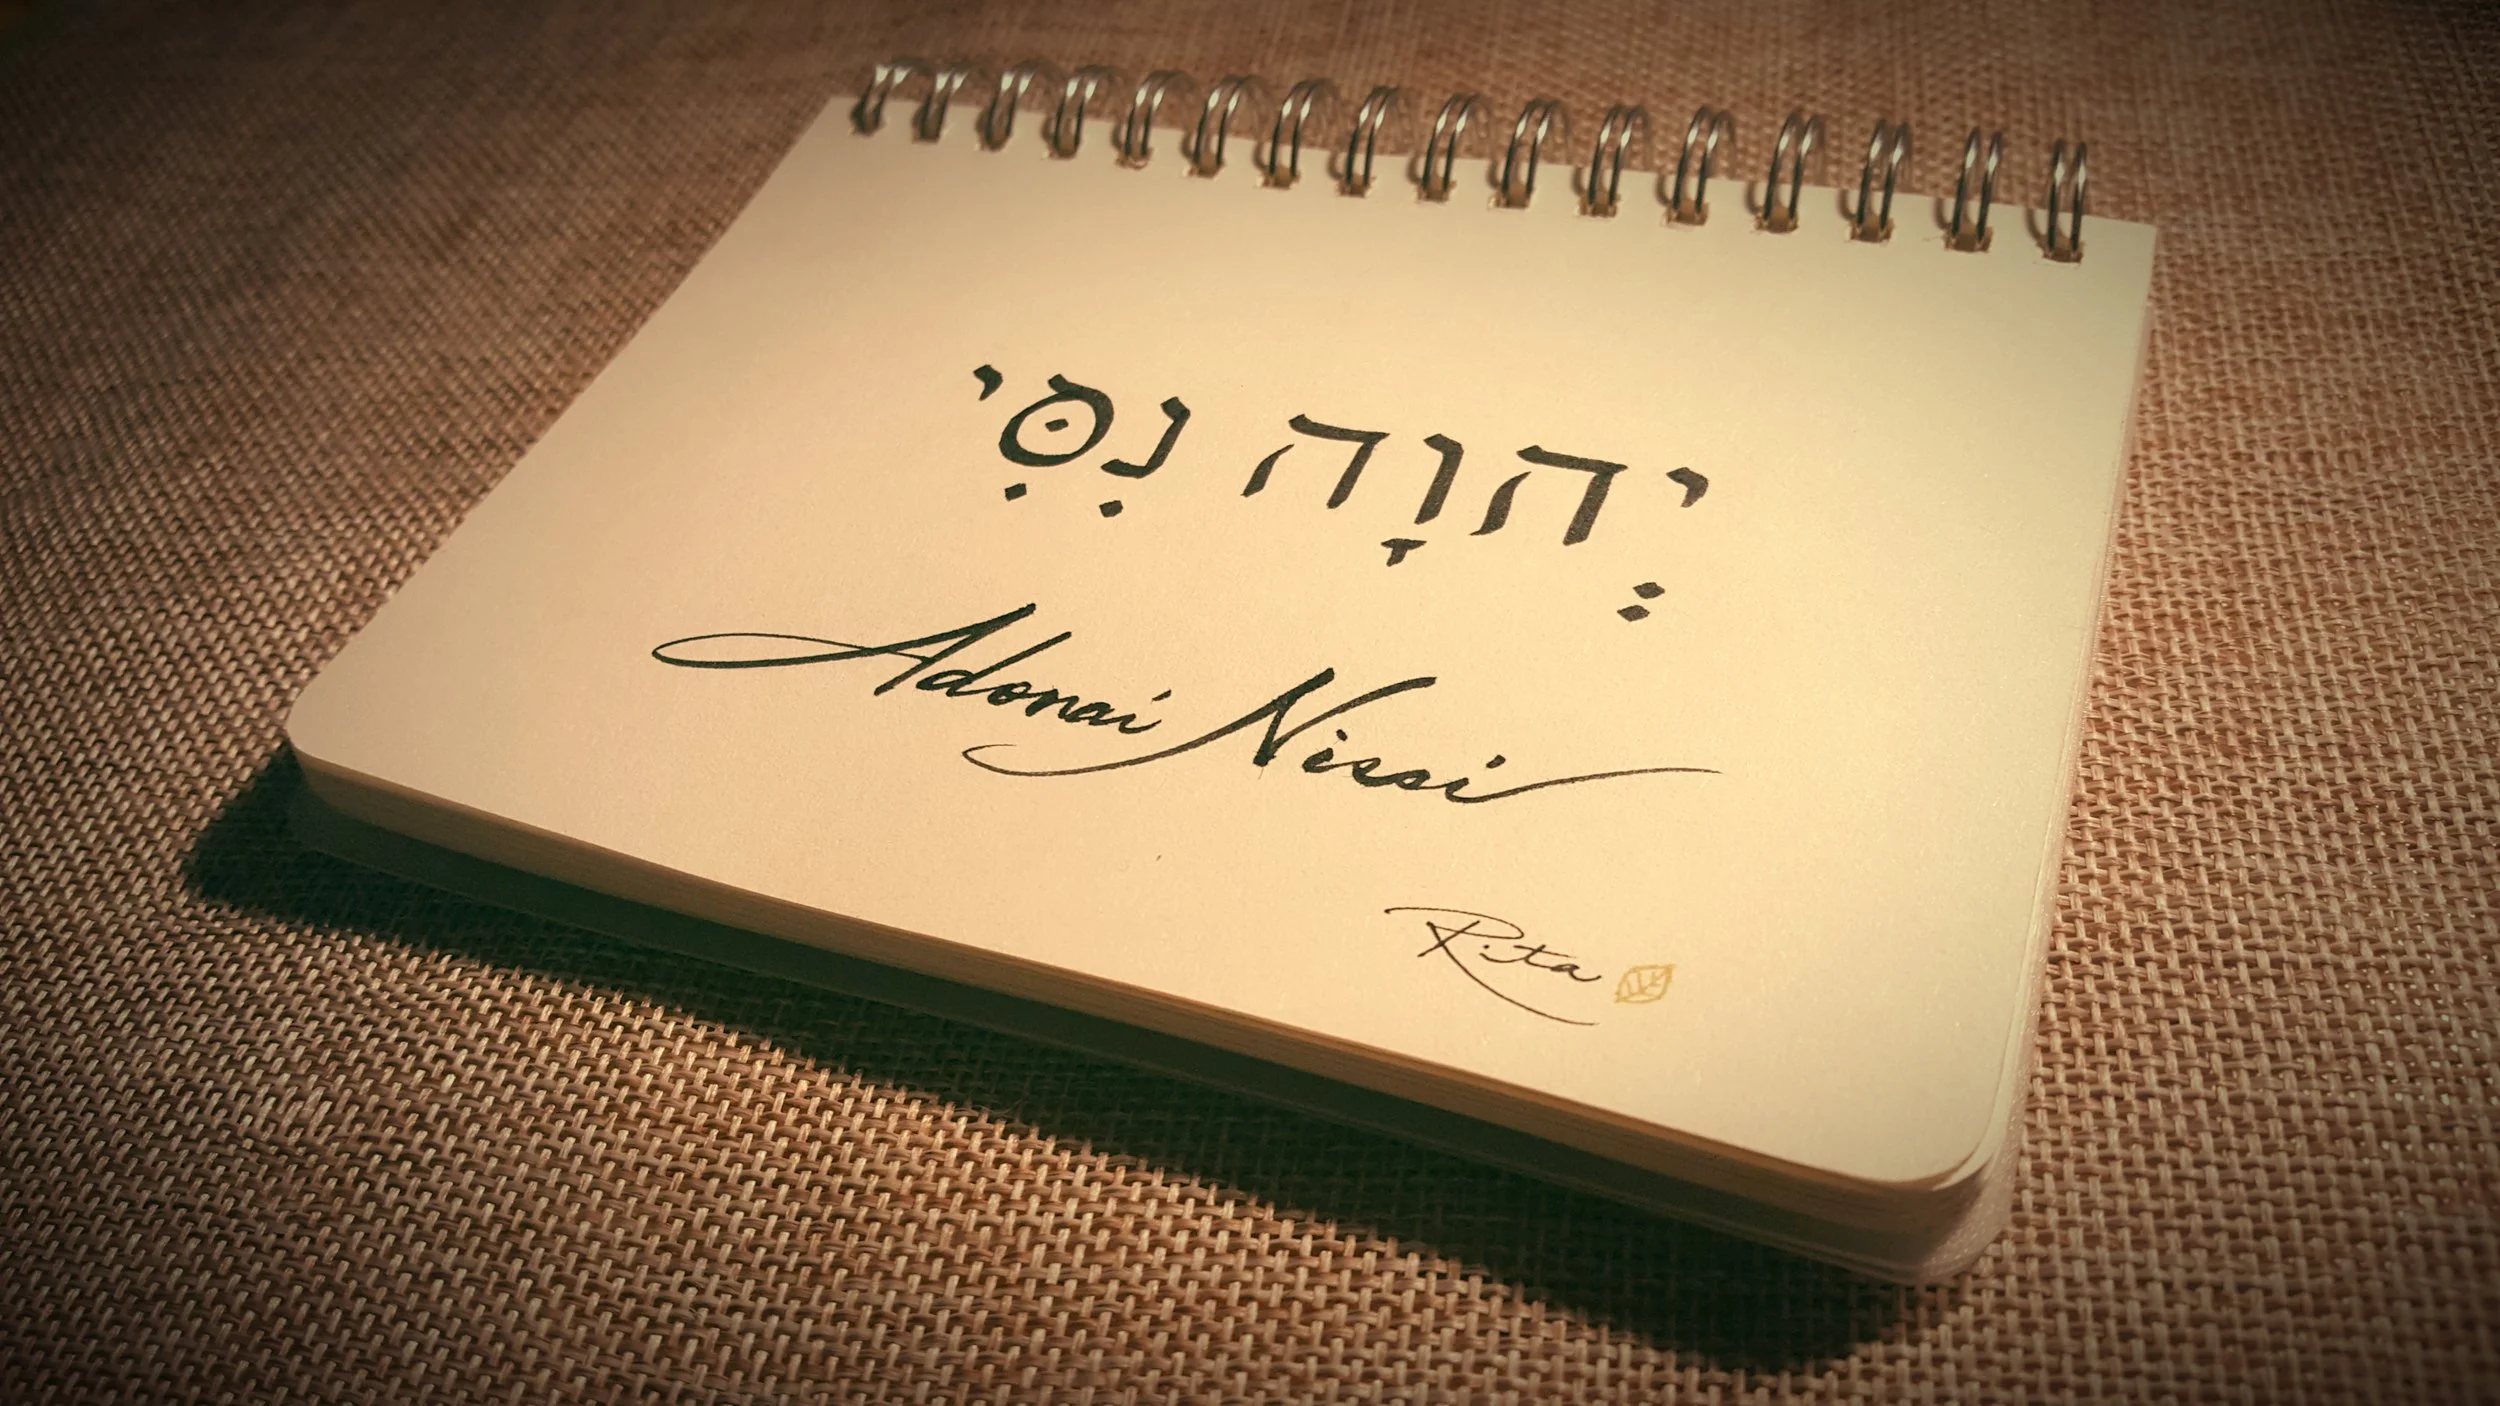 יְהוָה נִסִּי
Adonai Nissi
Rita